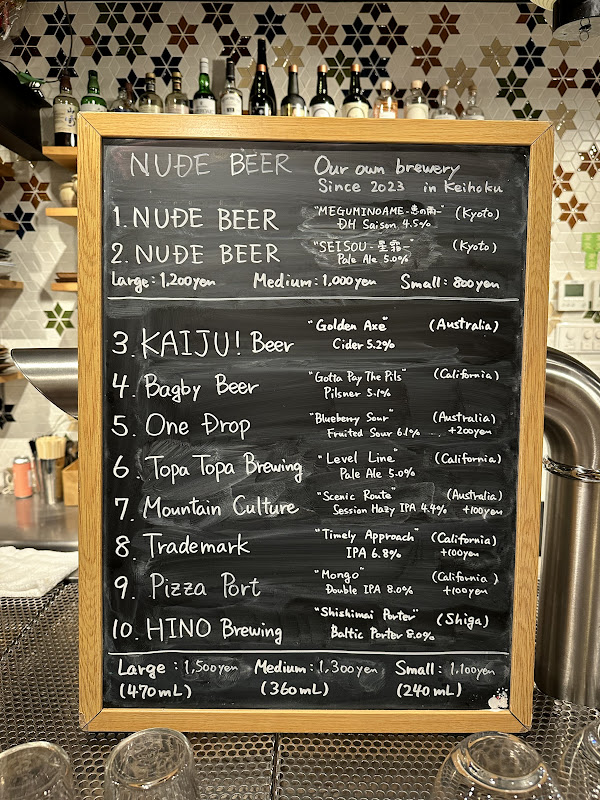 NUĐE BEER Our own brewery
Since 2023 in Keihoku
1. NUĐE BEER "MEGUMINOAME-恵の雨-" (Kyoto)
DH Saison 4.5%
2. NUĐE BEER "SEISOU-星霜-" (Kyoto)
Pale Ale 5.0%
Large: 1,200yen Medium: 1,000yen Small: 800yen
3. KAIJU! Beer "Golden Axe" (Australia)
Cider 5.2%
4. Bagby Beer "Gotta Pay The Pils" (California)
Pilsner 5.1%
5. One Drop "Blueberry Sour" (Australia)
Fruited Sour 6.1% +200yen
6. Topa Topa Brewing "Level Line" (California)
Pale Ale 5.0%
7. Mountain Culture "Scenic Route" (Australia)
Session Hazy IPA 4.4% +100yen
8. Trademark "Timely Approach" (California)
IPA 6.8% +100yen
9. Pizza Port "Mongo" (California)
Double IPA 8.0% +100yen
10. HINO Brewing "Shishimai Porter" (Shiga)
Baltic Porter 8.0%
Large: 1,500yen Medium: 1,300yen Small: 1,100yen
(470mL) (360mL) (240mL)